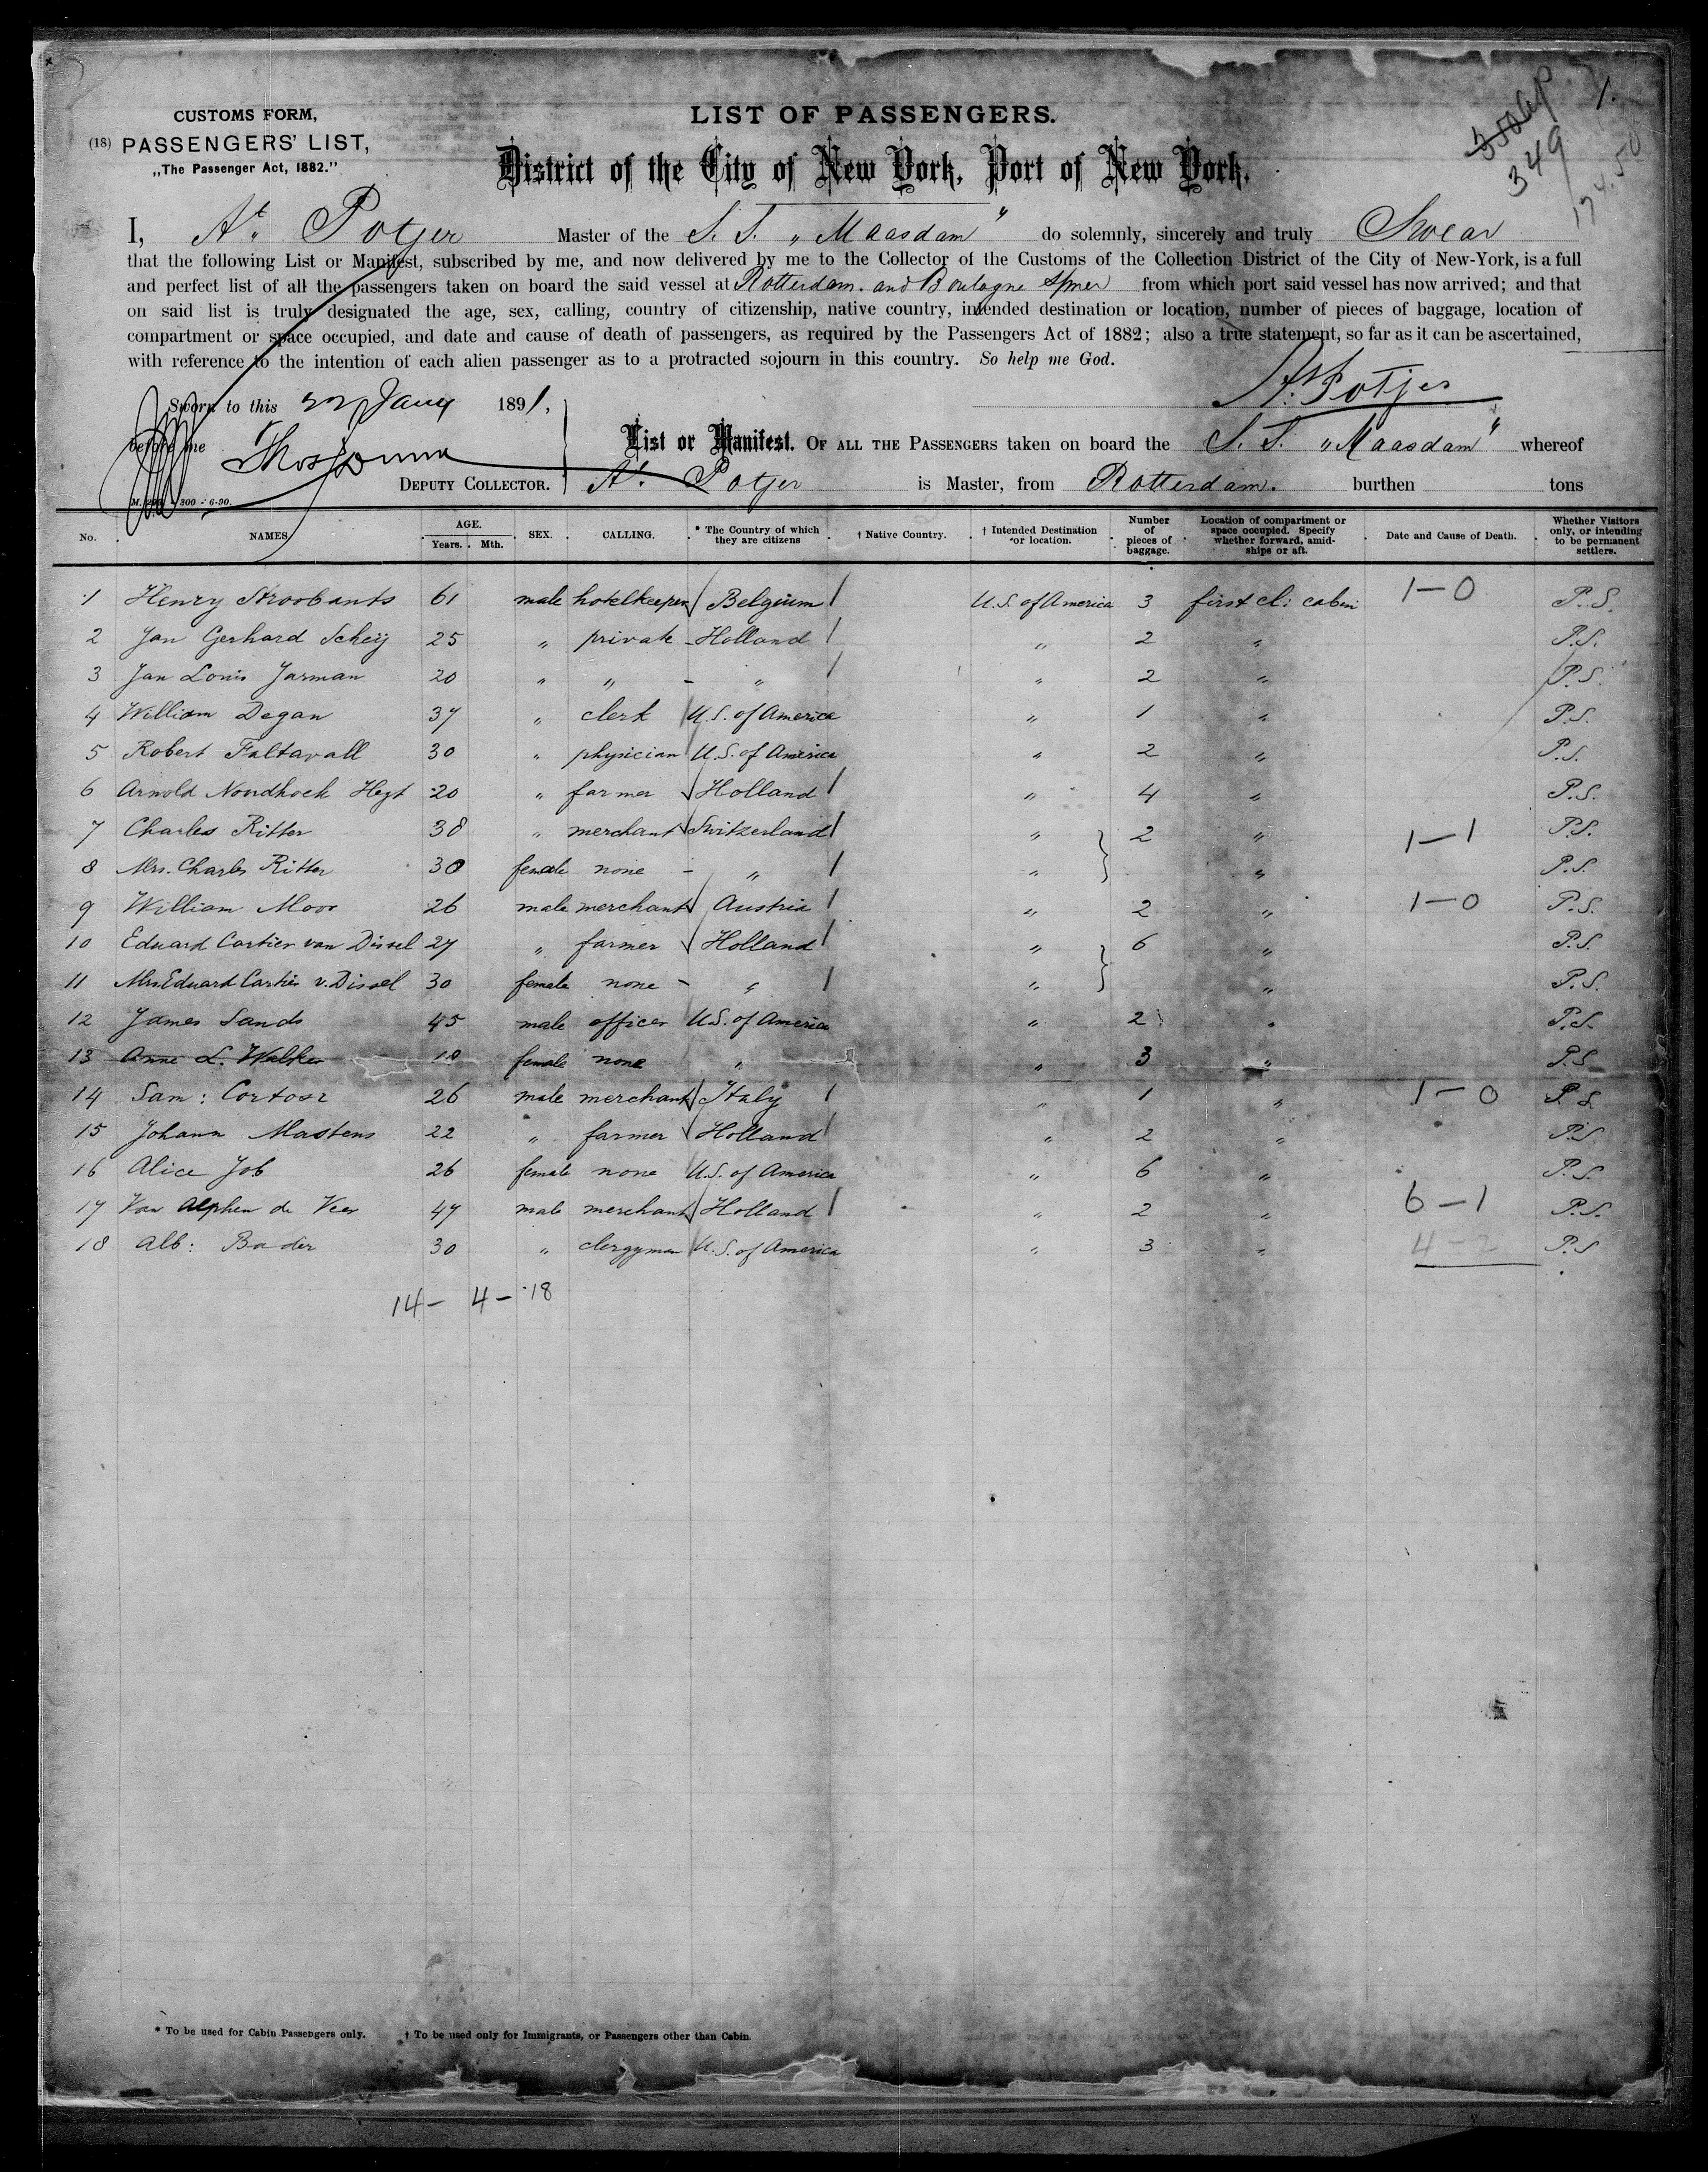 CUSTOMS FORM,
(18) PASSENGERS' LIST,
„The Passenger Act, 1882.”
LIST OF PASSENGERS.
District of the City of New York, Port of New York.
1.
349
174.50
I, At. Potjer Master of the S. S. „Maasdam” do solemnly, sincerely and truly Swear
that the following List or Manifest, subscribed by me, and now delivered by me to the Collector of the Customs of the Collection District of the City of New-York, is a full
and perfect list of all the passengers taken on board the said vessel at Rotterdam and Boulogne s/mer from which port said vessel has now arrived; and that
on said list is truly designated the age, sex, calling, country of citizenship, native country, intended destination or location, number of pieces of baggage, location of
compartment or space occupied, and date and cause of death of passengers, as required by the Passengers Act of 1882; also a true statement, so far as it can be ascertained,
with reference to the intention of each alien passenger as to a protracted sojourn in this country. So help me God.
At. Potjer
Sworn to this 22 Jany 1891,
before me
List or Manifest. OF ALL THE PASSENGERS taken on board the S. S. „Maasdam” whereof
DEPUTY COLLECTOR. At. Potjer is Master, from Rotterdam. burthen tons
No. NAMES AGE. Years. Mth. SEX. CALLING. * The Country of which they are citizens † Native Country. † Intended Destination or location. Number of pieces of baggage. Location of compartment or space occupied. Specify whether forward, amidships or aft. Date and Cause of Death. Whether Visitors only, or intending to be permanent settlers.
1 Henry Stroobants 61 male hotelkeeper Belgium / U.S. of America 3 first cl: cabin 1-0 P.S.
2 Jan Gerhard Scheij 25 „ private - Holland / „ 2 „ P.S.
3 Jan Louis Jarman 20 „ „ - „ / „ 2 „ P.S.
4 William Degan 37 „ clerk U.S. of America „ 1 „ P.S.
5 Robert Faltavall 30 „ physician U.S. of America „ 2 „ P.S.
6 Arnold Noudhoek Hegt 20 „ farmer Holland / „ 4 „ P.S.
7 Charles Ritter 38 „ merchant Switzerland / „ 2 „ 1-1 P.S.
8 Mrs. Charles Ritter 30 female none - „ / „ „ P.S.
9 William Moor 26 male merchant Austria / „ 2 „ 1-0 P.S.
10 Eduard Cartier van Dissel 27 „ farmer Holland / „ 6 „ P.S.
11 Mrs. Eduard Cartier v. Dissel 30 female none - „ / „ „ P.S.
12 James Sands 45 male officer U.S. of America „ 2 „ P.S.
13 Anne L. Walker 18 female none „ „ 3 „ P.S.
14 Sam: Cortosz 26 male merchant Italy / „ 1 „ 1-0 P.S.
15 Johann Mastens 22 „ farmer Holland / „ 2 „ P.S.
16 Alice Job 26 female none U.S. of America „ 6 „ P.S.
17 Van Alphen de Veer 47 male merchant Holland / „ 2 „ 6-1 P.S.
18 Alb: Bader 30 „ clergyman U.S. of America „ 3 „ 4-2 P.S
14- 4- 18
* To be used for Cabin Passengers only. † To be used only for Immigrants, or Passengers other than Cabin.